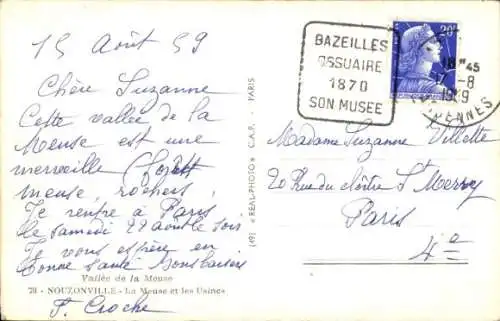 15 Août 59
Chère Suzanne
Cette vallée de la
Meuse est une
merveille forêts
meuse, rochers,
Je rentre à Paris
le samedi 22 août le soir
Je vous espère en
bonne santé Bons baisers
F. Croche
Vallée de la Meuse
78 - NOUZONVILLE - La Meuse et les Usines
(49) "REAL-PHOTO" C.A.P. - PARIS
BAZEILLES
OSSUAIRE
1870
SON MUSEE
20F
18H45
17-8
1959
Madame Suzanne Villette
20 Rue du cloître St Merry
Paris
4e